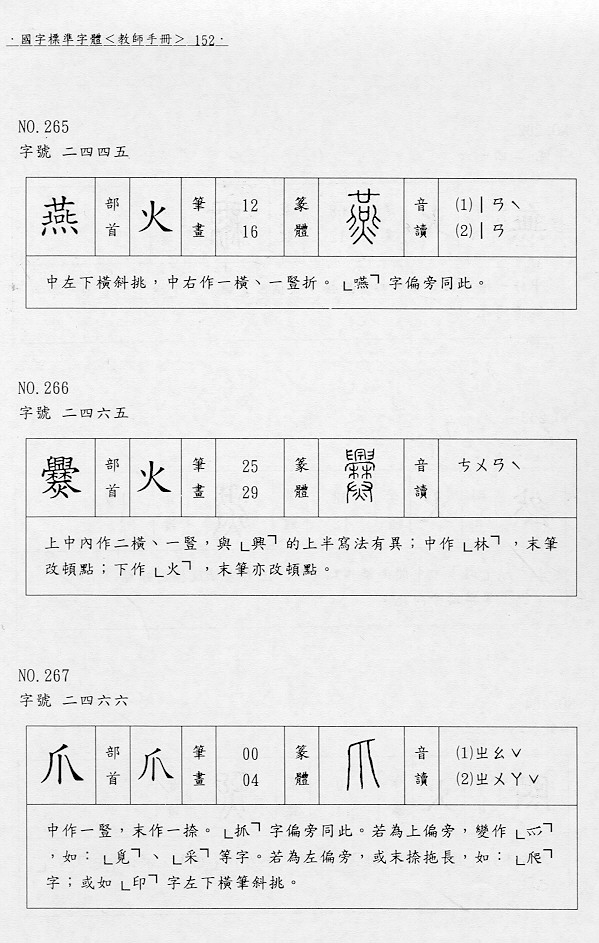 ·國字標準字體＜教師手冊＞ 152·
NO.265
字號 二四四五
燕 部首 火 筆畫 12 16 篆體 燕 音讀 (1)ㄧㄢˋ (2)ㄧㄢ
中左下橫斜挑，中右作一橫、一豎折。「嚥」字偏旁同此。
NO.266
字號 二四六五
爨 部首 火 筆畫 25 29 篆體 爨 音讀 ㄘㄨㄢˋ
上中內作二橫、一豎，與「興」的上半寫法有異；中作「林」，末筆
改頓點；下作「火」，末筆亦改頓點。
NO.267
字號 二四六六
爪 部首 爪 筆畫 00 04 篆體 爪 音讀 (1)ㄓㄠˇ (2)ㄓㄨㄚˇ
中作一豎，末作一捺。「抓」字偏旁同此。若為上偏旁，變作「爫」
，如：「覓」、「采」等字。若為左偏旁，或末捺拖長，如：「爬」
字；或如「印」字左下橫筆斜挑。